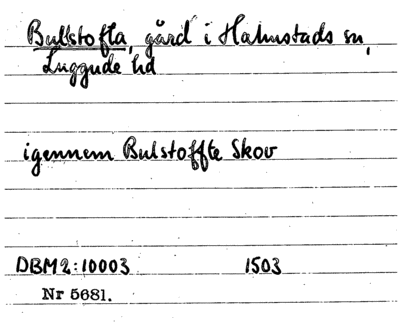 Bulstofta, gård i Halmstads sn,
Luggude hd
igennem Bulstoffte Skov
DBM 2:10003 1503
Nr 5681.